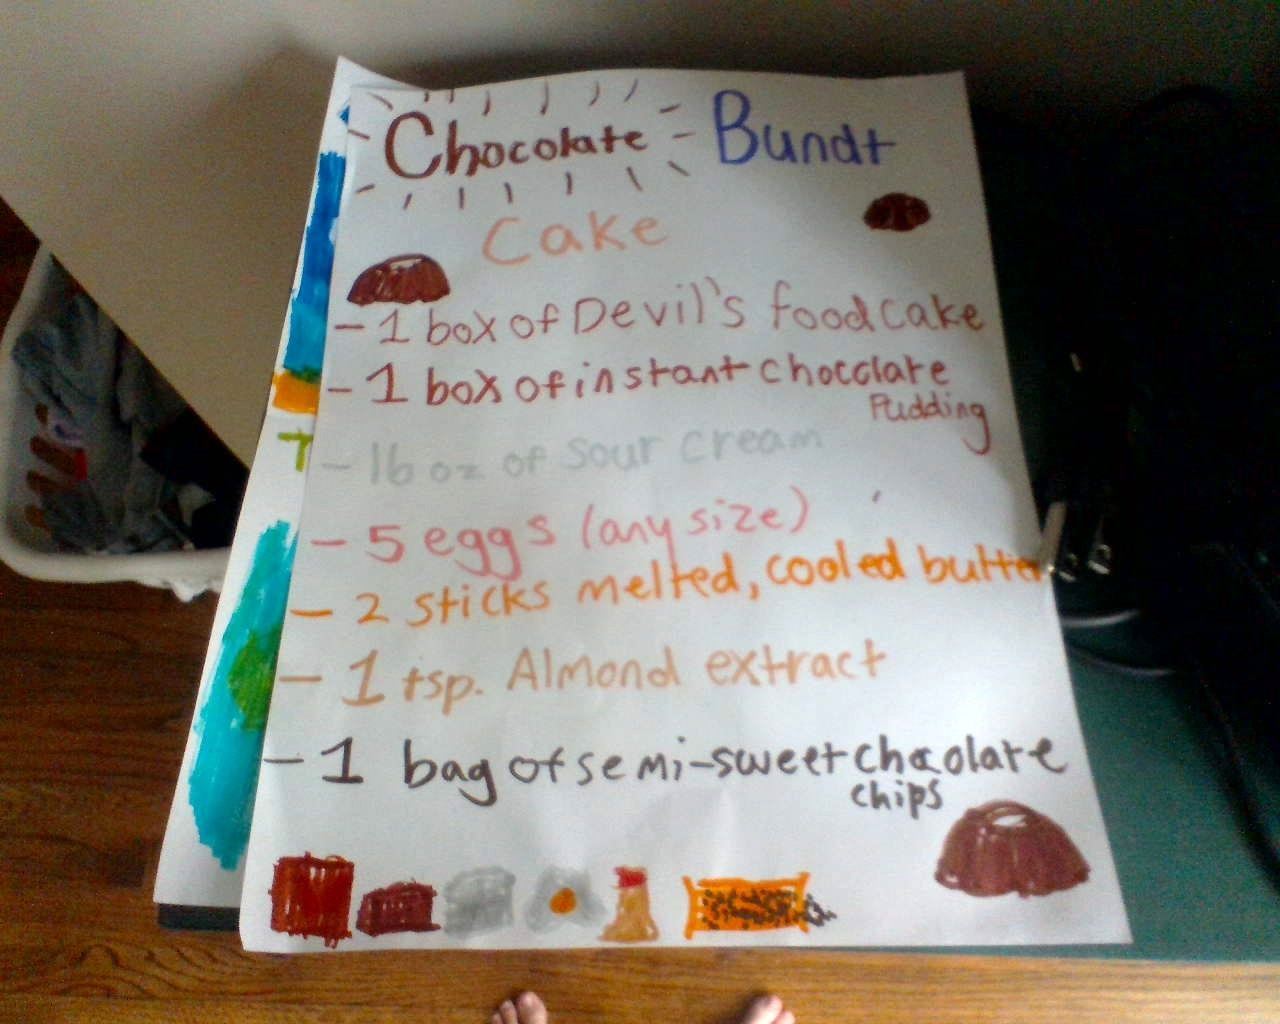 Chocolate Bundt
Cake
- 1 box of Devil's food cake
- 1 box of instant chocolate
Pudding
- 16 oz of sour cream
- 5 eggs (any size)
- 2 sticks melted, cooled butter
- 1 tsp. Almond extract
- 1 bag of semi-sweet chaolate
chips
T